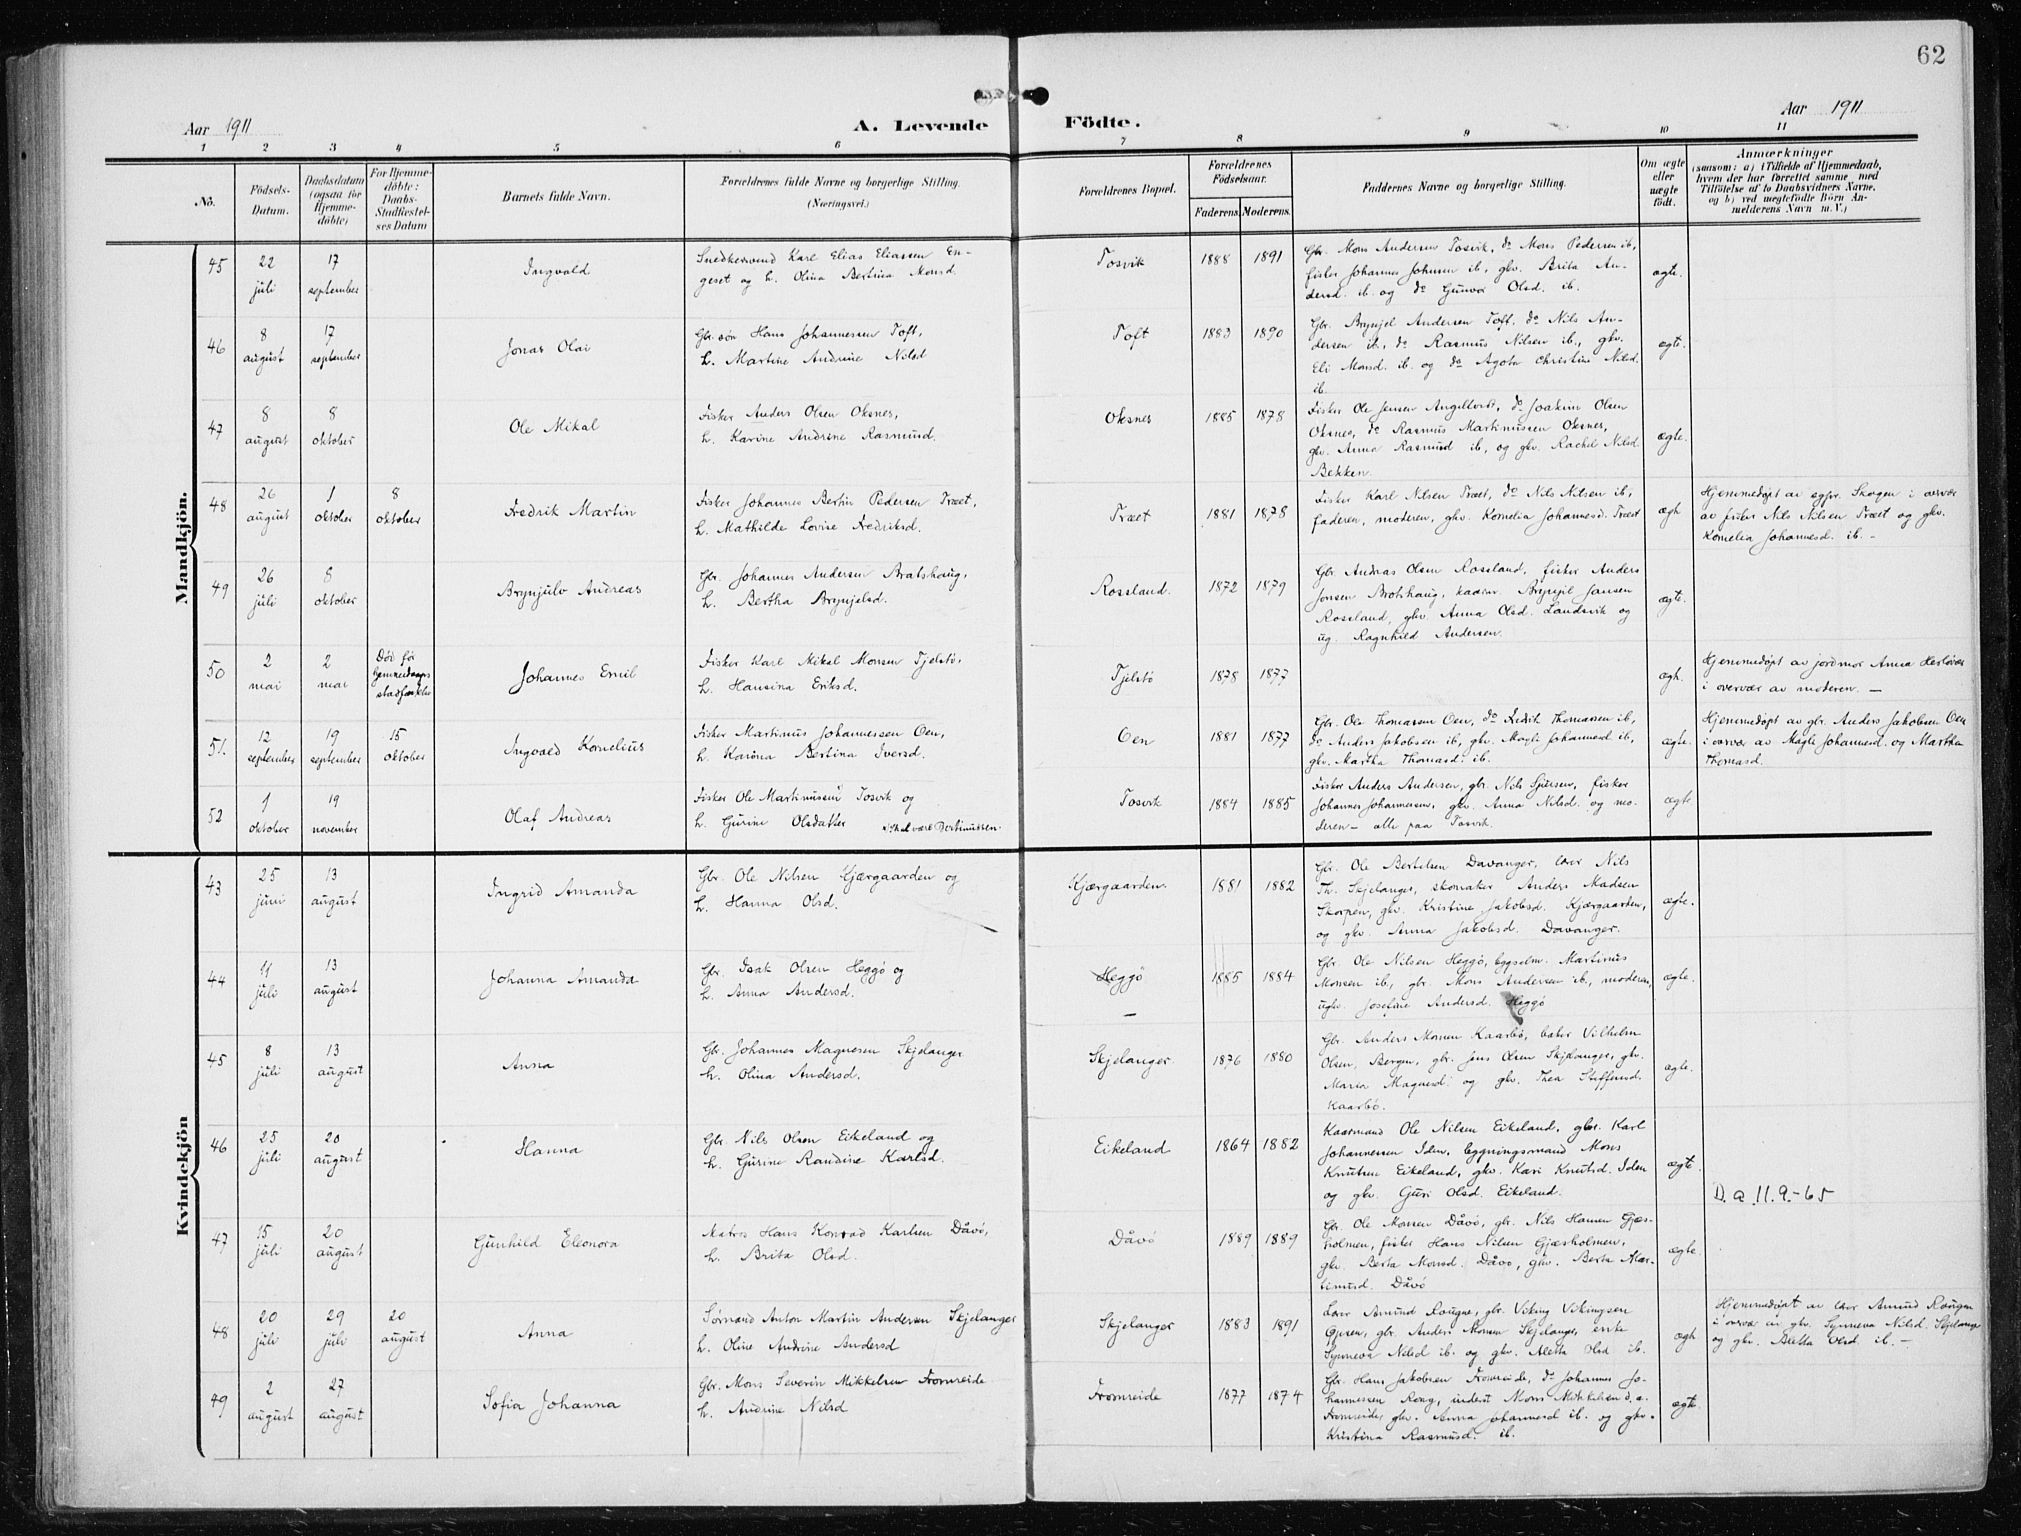 62
Aar 1911
A. Levende Födte.
Aar 1911
1 2 3 4 5 6 7 8 9 10 11
No.
Födsels-
Datum.
Daabsdatum
(ogsaa for
Hjemme-
döbte)
For Hjemme-
döbte:
Daabs-
Stadfæstel-
ses Datum
Barnets fulde Navn.
Forældrenes fulde Navne og borgerlige Stilling.
(Næringsvei.)
Forældrenes Bopæl.
Forældrenes
Födselsaar.
Faderens. Moderens.
Faddernes Navne og borgerlige Stilling.
Om ægte
eller
uægte
födt.
Anmærkninger
(saasom: a) i Tilfælde af Hjemmedaab,
hvem der har forrettet samme med
Tilföielse af to Daabsvidners Navne,
og b) ved uægtefödte Börn An-
melderens Navn m. V.)
Mandkjön.
45
22 juli
17 september
Ingvald
Snedkersvend Karl Elias Eliassen En-
geset og h. Olina Bertina Monsd.
Tosvik
1888 1891
Gbr. Mons Andersen Tosvik, do Mons Pedersen ib,
fisker Johannes Johnsen ib, gkv. Brita An-
dersd. ib. og do Gunvor Olsd. ib.
ægte.
46
8 august
17 september
Jonas Olai
Gbr. sön Hans Johannessen Toft,
h. Martine Andrine Nilsd
Toft
1883 1890
Gbr. Brynjel Andersen Toft, do Nils An-
dersen ib, do Rasmus Nilsen ib., gkv.
Eli Monsd. ib. og do Agota Christine Nilsd.
ib.
ægte.
47
8 august
8 oktober
Ole Mikal
Fisker Anders Olsen Oksnes,
h. Karine Andrine Rasmusd.
Oksnes
1885 1878
Fisker Ole Jensen Angeltveit, do Joakim Olsen
Oksnes, do Rasmus Martinussen Oksnes,
gkv. Anna Rasmusd ib, og gkv. Rachel Nilsd
Bekken.
ægte.
48
26 august
1 oktober
8 oktober
Fredrik Martin
Fisker Johannes Bertin Pedersen Træet,
h. Mathilde Lovise Fredriksd.
Træet
1881 1878
Fisker Karl Nilsen Træet, do Nils Nilsen ib,
faderen, moderen, gkv. Kornelia Johannesd. Træet
ægte
Hjemmedøpt av sgpr. Skogen i overvær
av fisker Nils Nilsen Træet og gkv.
Kornelia Johannesd. ib. –
49
26 juli
8 oktober
Brynjulv Andreas
Gbr. Johannes Andersen Bratshaug,
h. Bertha Brynjelsd.
Rossland.
1872 1879
Gbr. Andreas Olsen Rossland, fisker Anders
Jonsen Brotshaug, kaarm. Brynjel Jansen
Rossland, gkv Anna Olsd. Landsvik og
ug. Ragnhild Andersen.
ægte.
50
2 mai
2 mai
Död før
hjemmedaaps
stadfæstelse
Johannes Emil
Fisker Karl Mikal Monsen Tjelstö,
h. Hansina Eriksd.
Tjelstö
1878 1877
ægte.
Hjemmedøpt av jordmor Anna Herløvær
i overvær av moderen. –
51.
12 september
19 september
15 oktober
Ingvald Kornelius
Fisker Martinus Johannessen Oen,
h. Karöna Bertina Iversd.
Oen
1881 1877
Gbr. Ole Thomassen Oen, do Fredrik Thomassen ib,
do Anders Jakobsen ib, gkv. Magle Johannesd. ib,
gkv. Martha Thomasd. ib.
ægte.
Hjemmedøpt av gbr. Anders Jakobsen Oen
i overvær av Magle Johannesd. og Martha
Thomasd.
52
1 oktober
19 november
Olaf Andreas
Fisker Ole Martinussen Tosvik og
h. Gurine Olsdatter
skal være Bertinussen.
Tosvik
1884 1885
Fisker Anders Andersen, gbr. Nils Sjursen, fisker
Johannes Johannessen, gkv. Anna Nilsd. og mo-
deren – alle paa Tosvik.
ægte
Kvindekjön
43
25 juni
13 august
Ingrid Amanda
Gbr. Ole Nilsen Kjærgaarden og
h. Hanna Olsd.
Kjærgaarden.
1881 1882
Gbr. Ole Bertelsen Davanger, lærer Nils
Th. Skjelanger, skomaker Anders Madsen
Skorpen, gkv. Kristine Jakobsd. Kjærgaarden,
og gkv. Anna Jakobsd. Davanger.
ægte.
44
11 juli
13 august
Johanna Amanda
Gbr. Isak Olsen Heggö og
h. Anna Andersd.
Heggö
1885 1884
Gbr. Ole Nilsen Heggö, bygselm. Martinus
Monsen ib., gbr. Mons Andersen ib., moderen,
ugkv. Josefine Andersd. Heggö
ægte.
45
8 juli
13 august
Anna
Gbr. Johannes Magnesen Skjelanger
h. Olina Andersd.
Skjelanger
1876 1880
Gbr. Anders Monsen Kaarbö, bøker Vilhelm
Olsen, Bergen, gbr. Jens Olsen Skjelanger, gkv.
Marta Magnesd. og gkv. Thea Steffensd.
Kaarbö.
ægte.
46
25 juli
20 august
Hanna
Gbr. Nils Olsen Eikeland og
h. Gurine Randine Karlsd.
Eikeland
1864 1882
Kaarmand Ole Nilsen Eikeland, gbr. Karl
Johannessen Iden, bygningsmand Mons
Knutsen Eikeland, gkv. Kari Knutsd. Iden
og gkv. Guri Olsd. Eikeland.
ægte.
D.a 11.9.-65
47
15 juli
20 august
Gunhild Eleonora
Matros Hans Konrad Karlsen Dåvö,
h. Brita Olsd.
Dåvö
1889 1889
Gbr. Ole Monsen Dåvö, gbr. Nils Hansen Gjæs-
holmen, fisker Hans Nilsen Gjæsholmen,
gkv. Berta Monsd. Dåvö, gkv. Berta Mar-
tinusd Dåvö
ægte.
48
20 juli
29 juli
20 august
Anna
Sømand Anton Martin Andersen Skjelanger
h. Oline Andrine Andersd
Skjelanger
1883 1891
Lærer Amund Rougne, gbr. Viking Vikingsen
gbr. Anders Monsen Skjelanger, enke
Synneva Nilsd ib. og gkv. Aletta Olsd ib.
ægte
Hjemmedøpt av lærer Amund Rougne
i overvær av gkv. Synneva Nilsd. Skjelanger
og gkv. Aletta Olsd ib. –
49
2 august
27 august
Sofia Johanna
Gbr. Mons Severin Mikkelsen Fromreide
h. Andrine Nilsd
Fromreide
1877 1874
Gbr. Hans Jakobsen Fromreide, do Johannes Jo-
hannessen Rong, inderst Mons Mikkelsen d.a.
Fromreide, gkv. Anna Johannesd ib. og gkv.
Kristina Rasmusd. ib.
ægte.